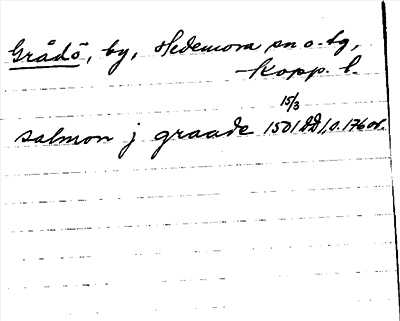 Grådö, by, Hedemora sn o. tg,
Kopp. l.
15/3
salmon j graade 1501 DD 1, o. 176 or.